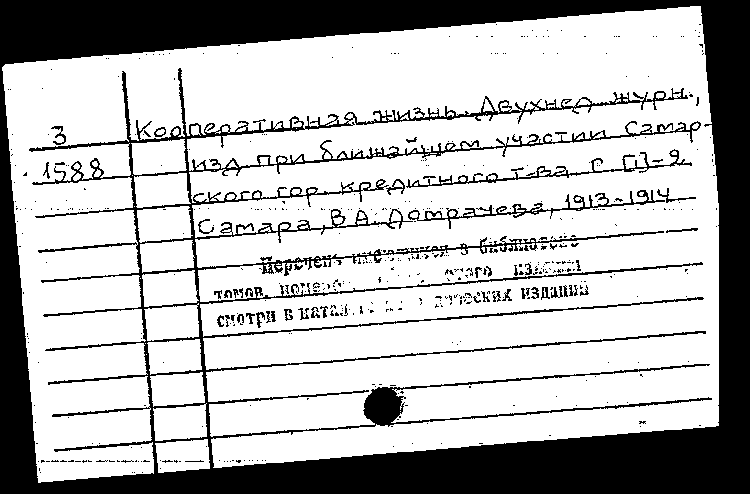 З
1588
Кооперативная жизнь. Двухнед. журн.,
изд. при ближайшем участии Самар-
ского гор. кредитного т-ва. Г. [1]-2.
Самара, В.А. Домрачева, 1913-1914
Перечень имеющихся в библиотеке
томов, номеров этого издания
смотри в катал изданий